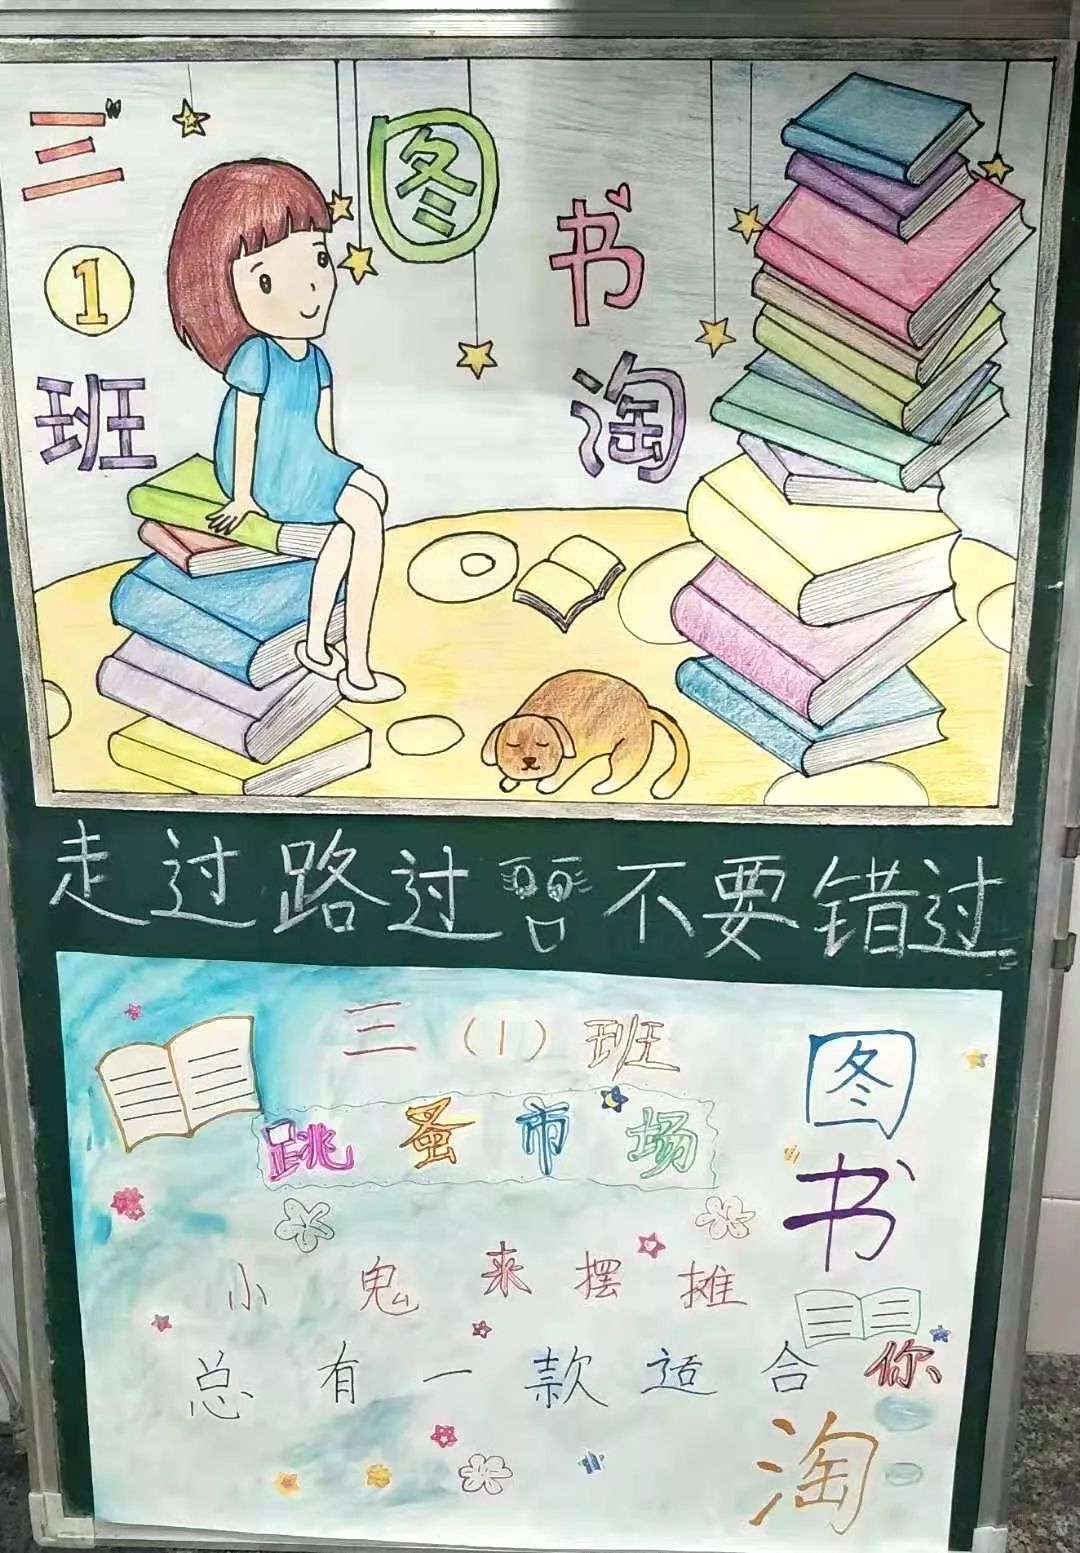 三①班
图书淘
走过路过
不要错过
三（1）班
跳蚤市场
小鬼来摆摊
总有一款适合你
图书淘